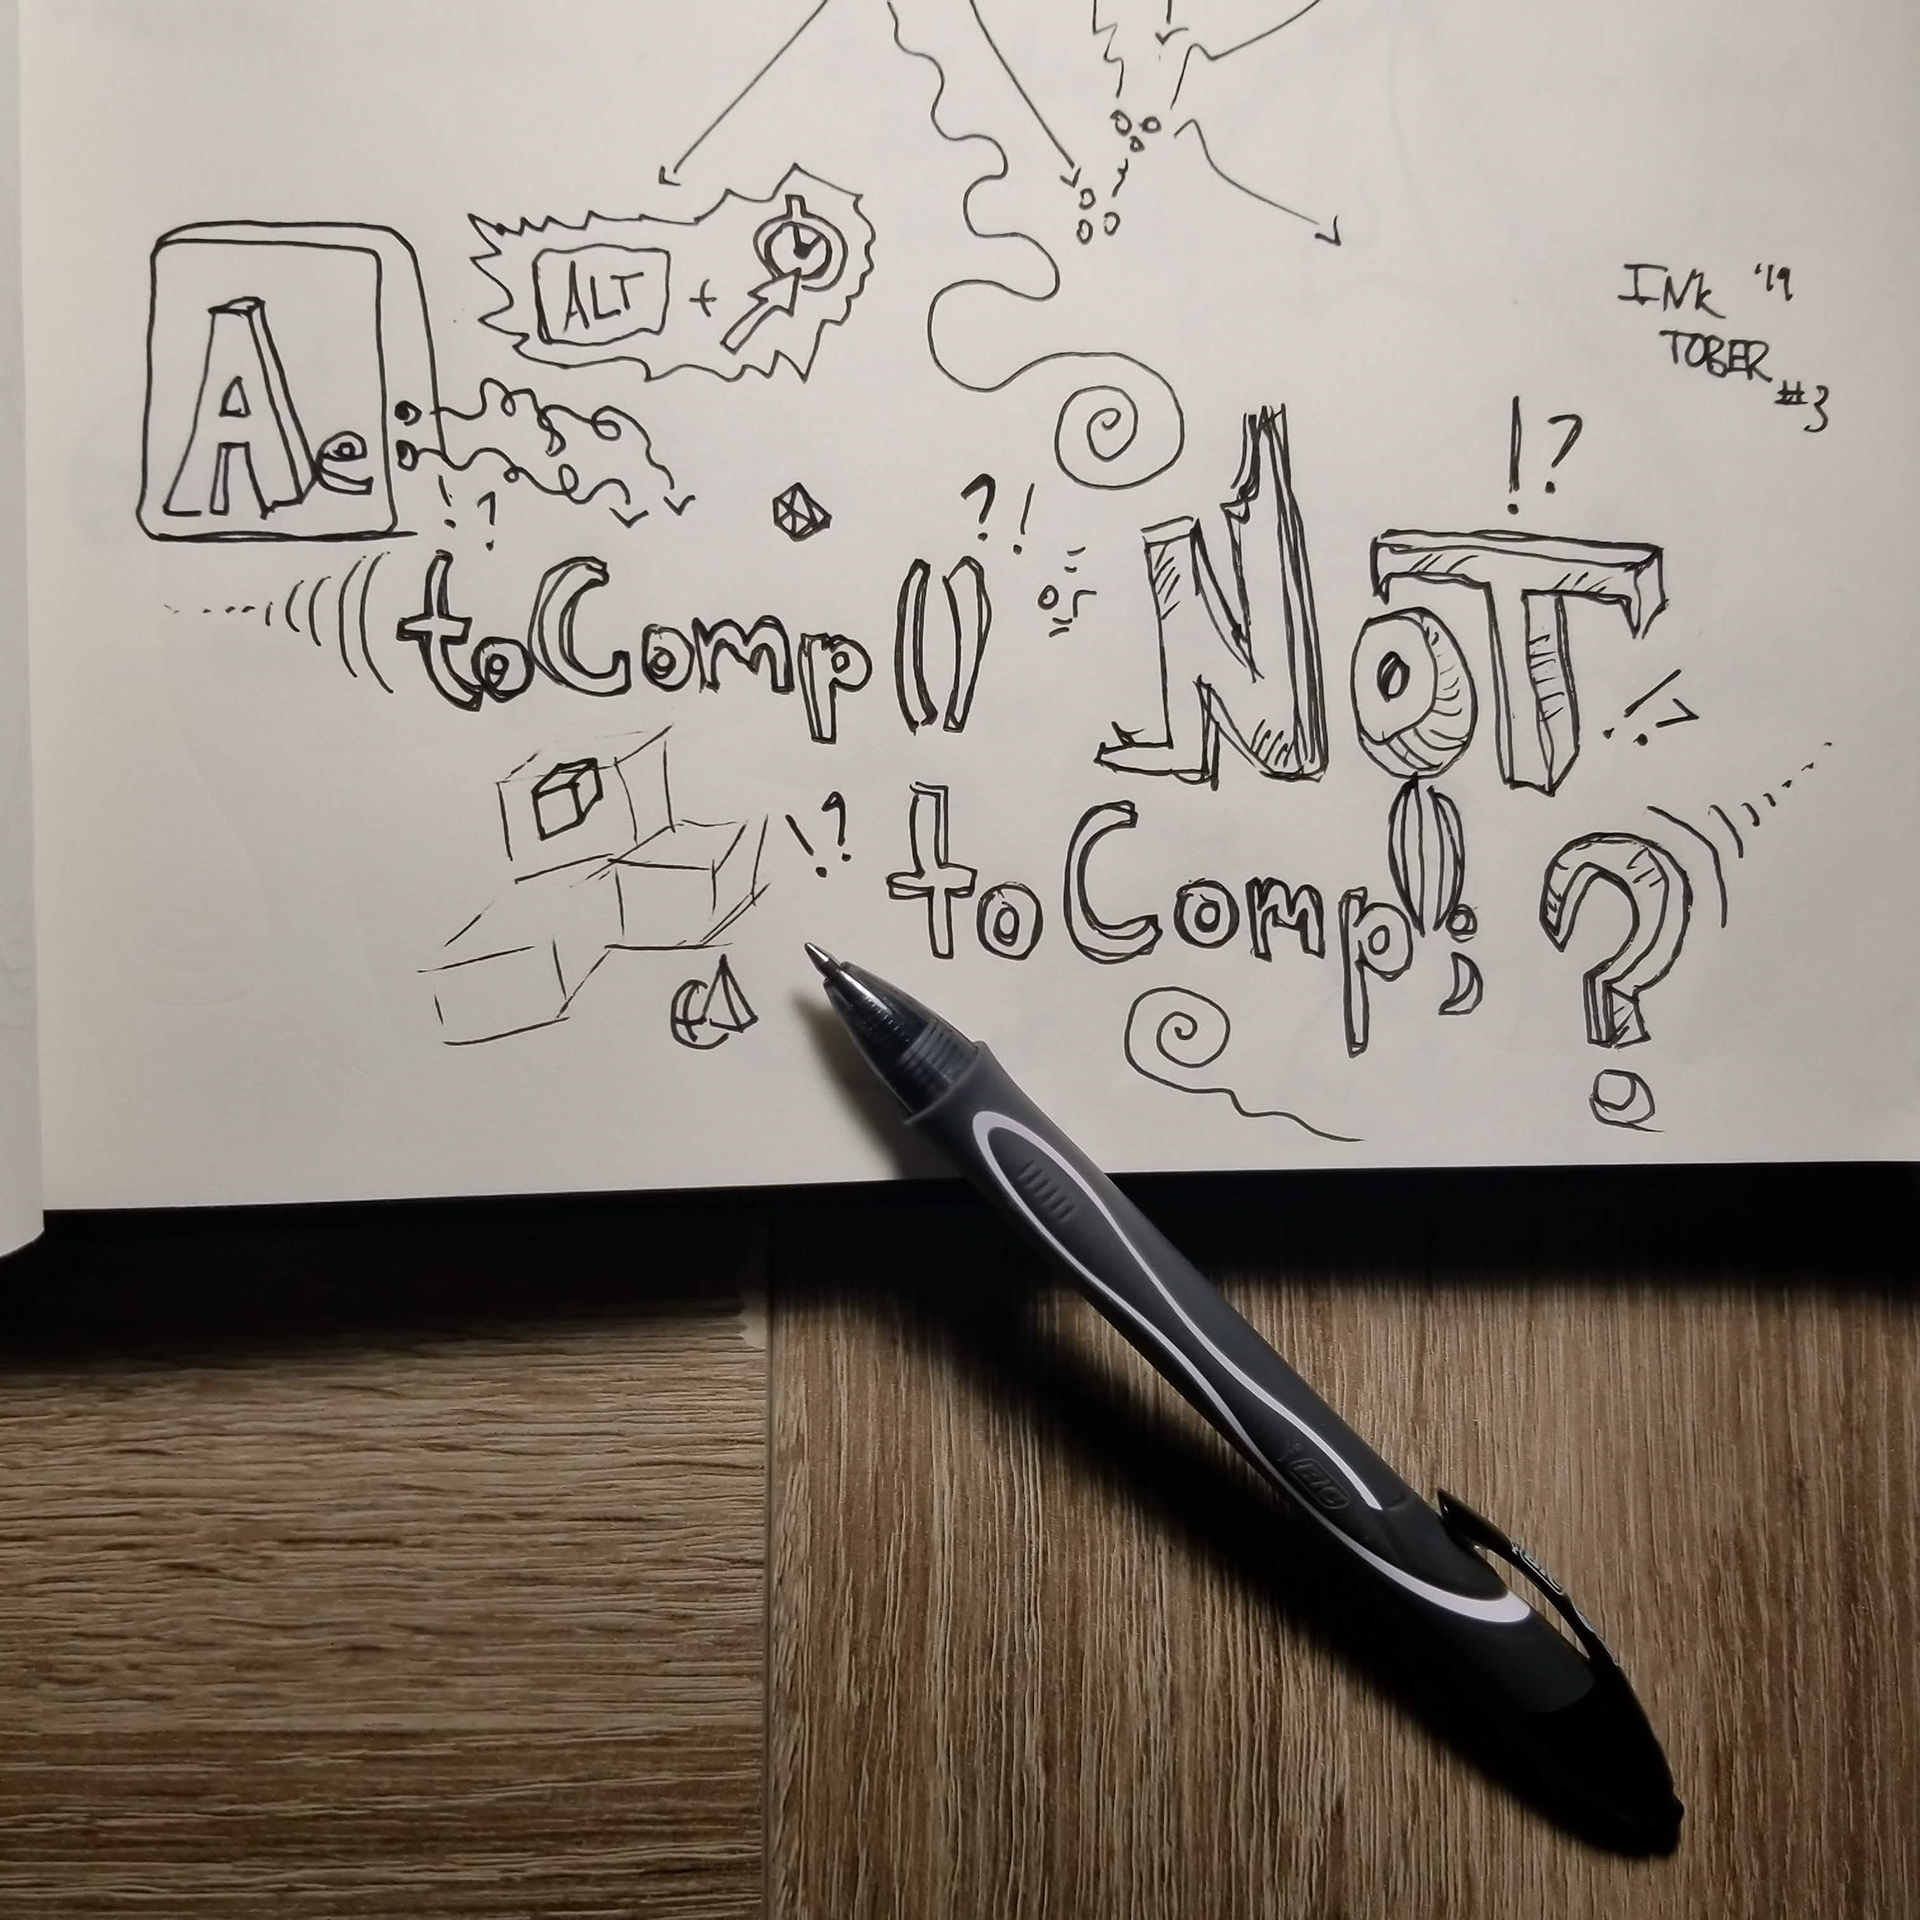 INK '19
TOBER
#3
ALT +
Ae:
!?
?!
!?
toComp() or NOT
!?
!?
toComp(); ?
BIC